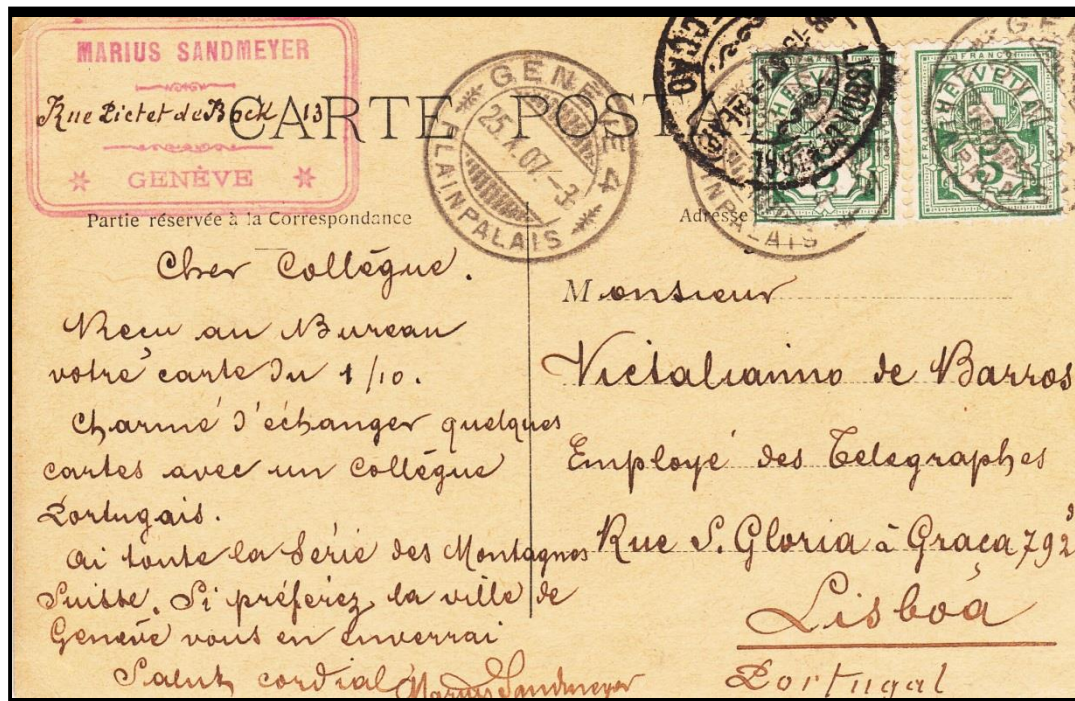 MARIUS SANDMEYER
Rue Pictet de Bock 13
GENÈVE
CARTE POST
GENÈVE 4
25.X.07.-3
PLAINPALAIS
HELVETIA
FRANCO
5
HELVETIA
FRANCO
5
Partie réservée à la Correspondance
Adresse
Cher Collègue.
Recu au Bureau
votre carte du 1/10.
Charmé d'échanger quelques
cartes avec un Collègue
Portugais.
Ai toute la Série des Montagnes
Suisse. Si préferez la ville de
Genève vous en enverrai
Salut cordial
Marius Sandmeyer
Monsieur
Victalianno de Barros
Employé des Telegraphes
Rue S. Gloria à Graça 79 2º
Lisboa
Portugal